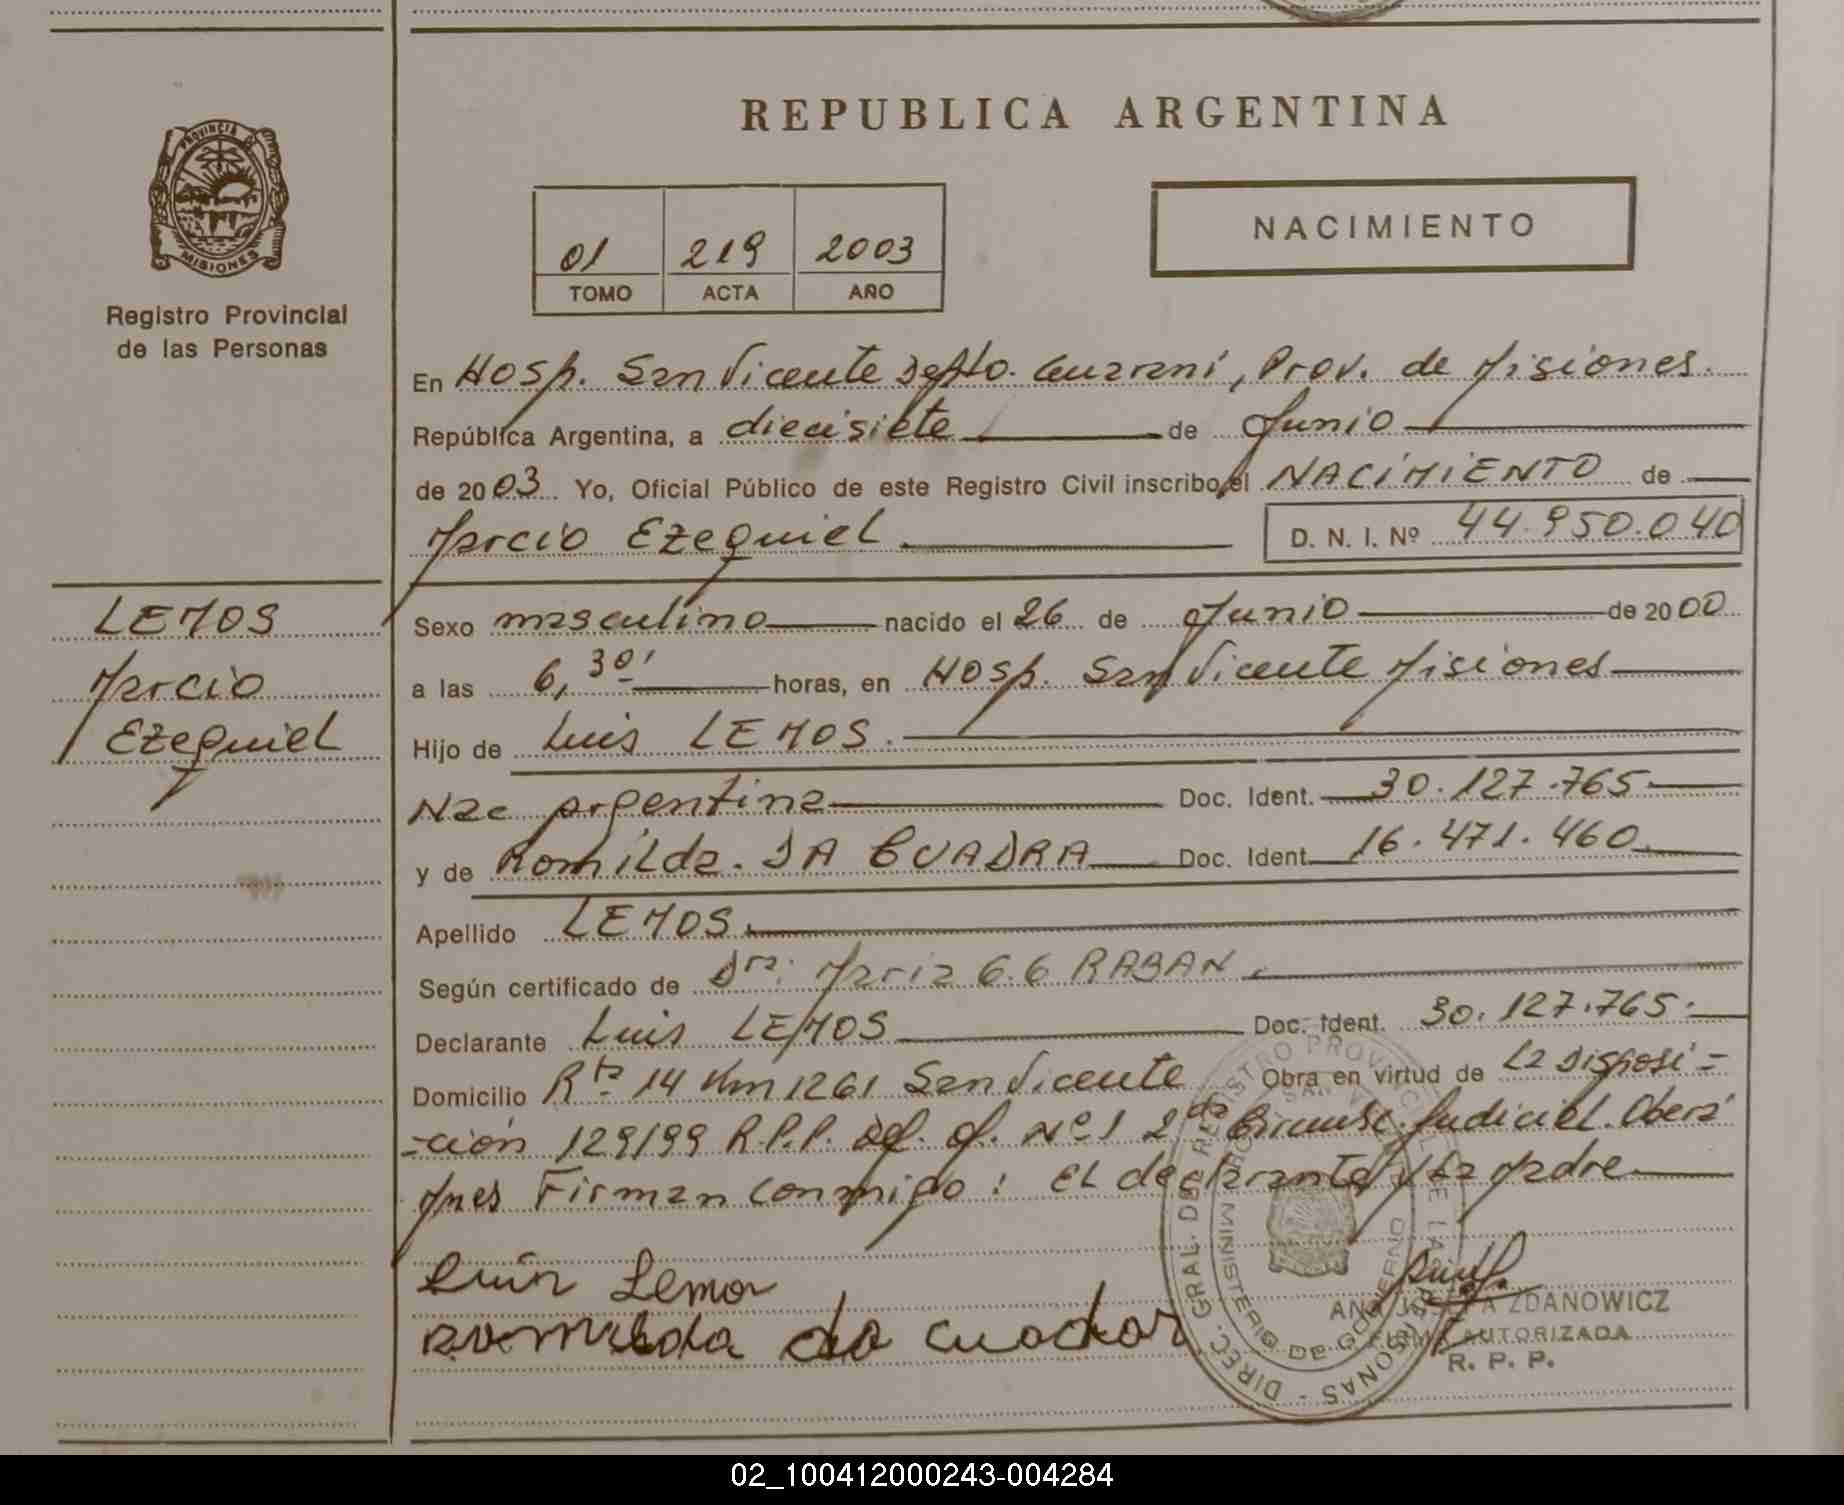 REPUBLICA ARGENTINA
PROVINCIA DE
MISIONES
Registro Provincial
de las Personas
01 219 2003
TOMO ACTA AÑO
NACIMIENTO
En Hosp. San Vicente Depto. Guarani, Prov. de Misiones.
República Argentina, a diecisiete de Junio
de 2003 Yo, Oficial Público de este Registro Civil inscribo el NACIMIENTO de
Marcio Ezequiel D. N. I. Nº 44.950.040
LEMOS
Marcio
Ezequiel
Sexo masculino nacido el 26 de Junio de 2000
a las 6,30' horas, en Hosp. San Vicente Misiones
Hijo de Luis LEMOS.
Nac argentina Doc. Ident. 30.127.765
y de Romilda. DA CUADRA Doc. Ident 16.471.460
Apellido LEMOS.
Según certificado de Dra. Maria G.G RABAN.
Declarante Luis LEMOS Doc. Ident. 30.127.765.
Domicilio Rta 14 Km 1261 San Vicente Obra en virtud de La Disposi=
=ción 129/99 R.P.P. Def. Of. Nº 1 2da Circunsc. Judicial. Oberá
Mnes Firman conmigo: El declarante y La Madre
Luis Lemos
romilda da cuadra
DIREC. GRAL. DEL REGISTRO PROVINCIAL DE LAS PERSONAS
MINISTERIO DE GOBIERNO
ZDANOWICZ
FIRMA AUTORIZADA
R. P. P.
02_100412000243-004284